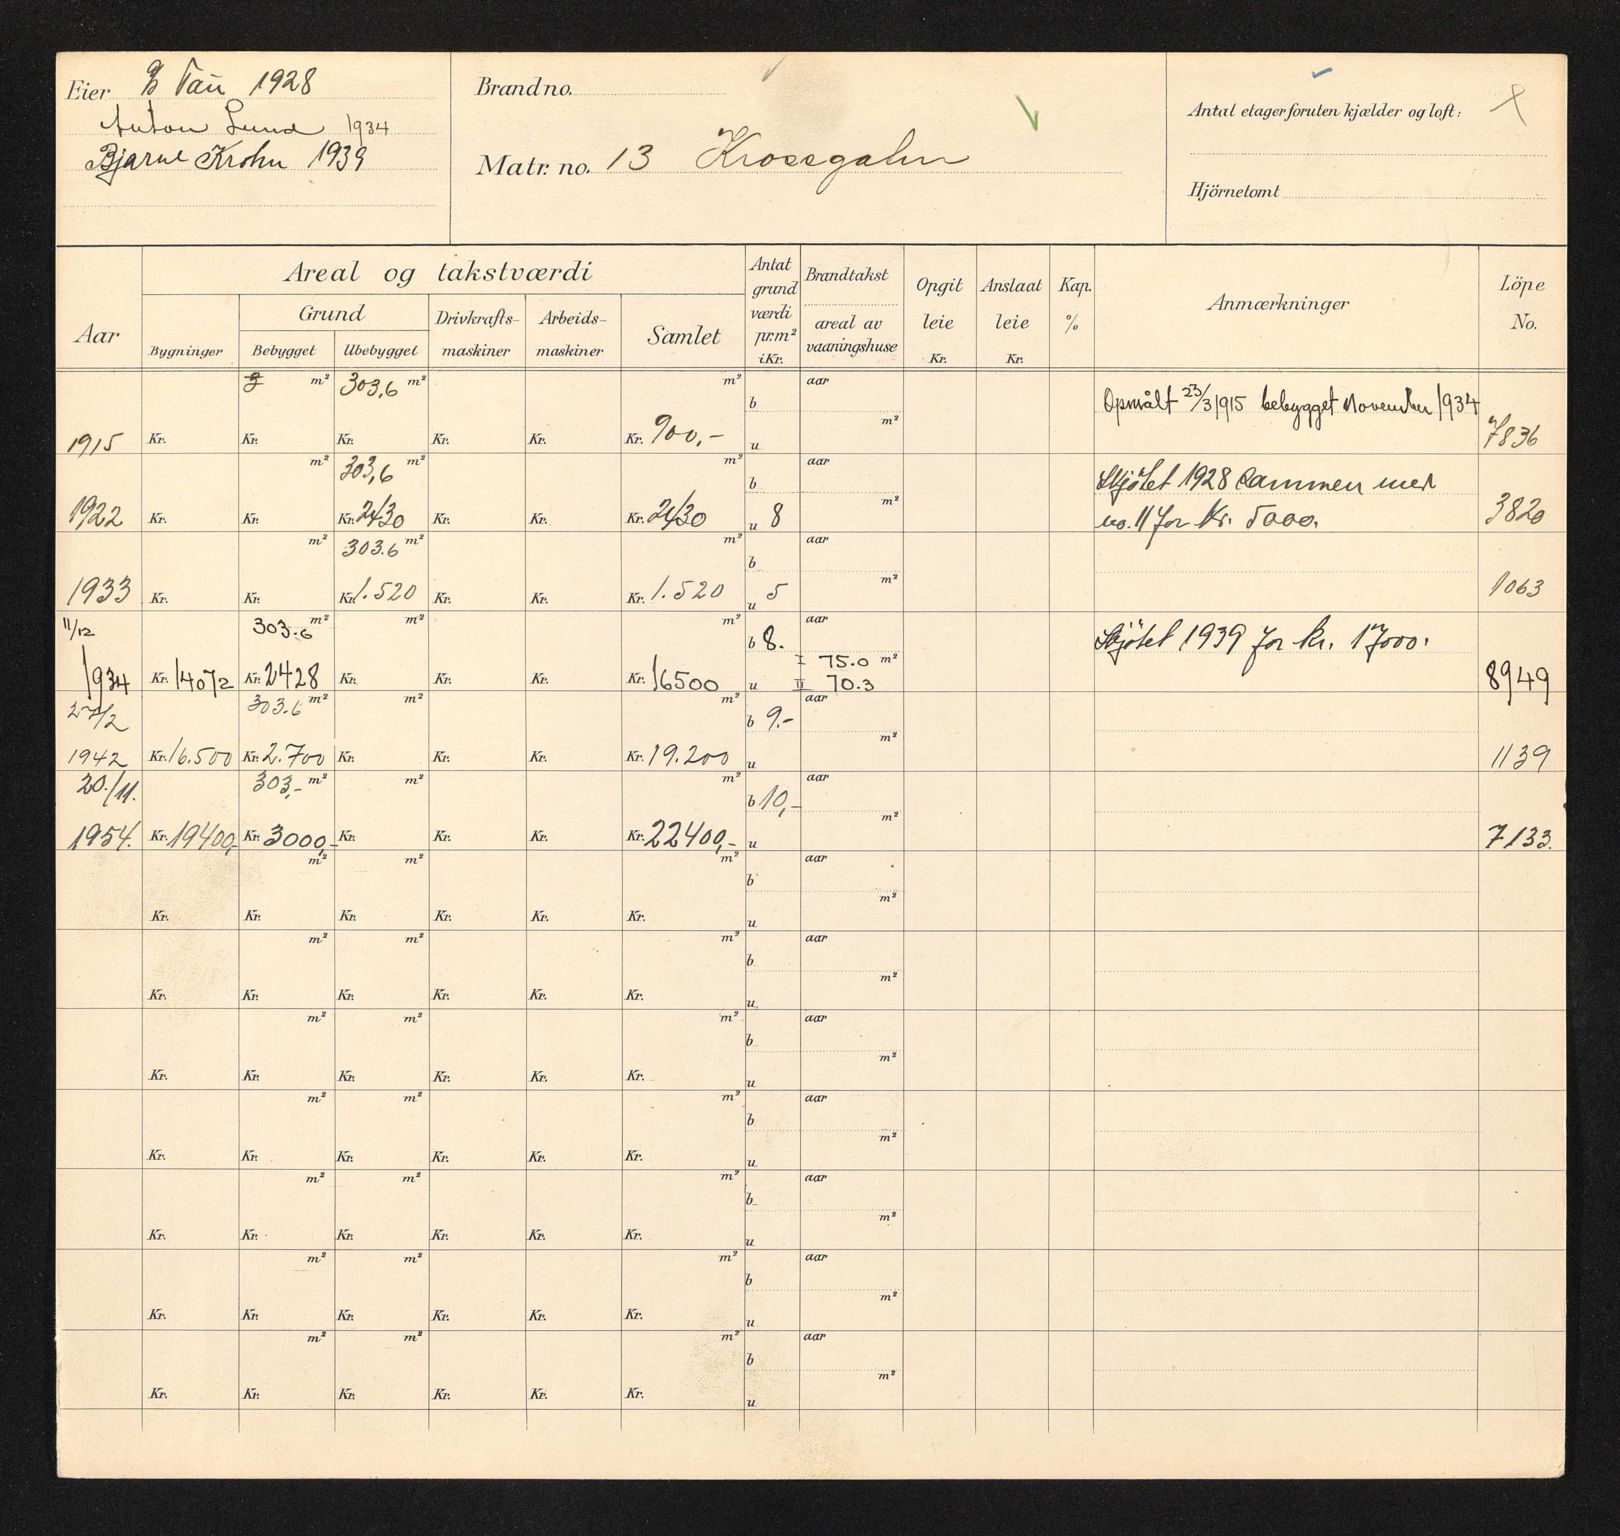 Eier Tau 1928
Anton Lund 1934
Bjarne Krohn 1939
Brand no.
Matr. no. 13 Krossgaten
Antal etager foruten kjælder og loft:
Hjörnetomt
Aar
Areal og takstværdi
Bygninger
Grund
Bebygget
Ubebygget
Drivkrafts-
maskiner
Arbeids-
maskiner
Samlet
Antat
grund
værdi
pr. m²
i Kr.
Brandtakst
areal av
vaaningshuse
Opgit
leie
Kr.
Anslaat
leie
Kr.
Kap.
%
Anmærkninger
Löpe
No.
m² 303,6 m² m² aar
b
m²
Opmålt 23/3 1915 bebygget November 1934
1915 Kr. Kr. Kr. Kr. Kr. Kr. 900,- u 7836
m² 303,6 m² m² aar
b
m²
Skjötet 1928 sammen med
no. 11 for Kr. 5000.
1922 Kr. Kr. Kr. 2430 Kr. Kr. Kr. 2430 u 8 3820
m² 303.6 m² m² aar
b
m²
1933 Kr. Kr. Kr. 1.520 Kr. Kr. Kr. 1.520 u 5 1063
11/12 303.6 m² m² m² aar
b 8.
I 75.0 m²
II 70.3
Skjötet 1939 for kr. 17000.
1934 Kr. 14072 Kr. 2428 Kr. Kr. Kr. Kr. 16500 u 8949
27/2 303.6 m² m² m² aar
b 9.-
m²
1942 Kr. 16.500 Kr. 2.700 Kr. Kr. Kr. Kr. 19.200 u 1139
20./11. 303,- m² m² m² aar
b 10,-
m²
1954. Kr. 19400,- Kr. 3000,- Kr. Kr. Kr. Kr. 22400,- u 7133.
m² m² m² aar
b
m²
Kr. Kr. Kr. Kr. Kr. Kr. u
m² m² m² aar
b
m²
Kr. Kr. Kr. Kr. Kr. Kr. u
m² m² m² aar
b
m²
Kr. Kr. Kr. Kr. Kr. Kr. u
m² m² m² aar
b
m²
Kr. Kr. Kr. Kr. Kr. Kr. u
m² m² m² aar
b
m²
Kr. Kr. Kr. Kr. Kr. Kr. u
m² m² m² aar
b
m²
Kr. Kr. Kr. Kr. Kr. Kr. u
m² m² m² aar
b
m²
Kr. Kr. Kr. Kr. Kr. Kr. u